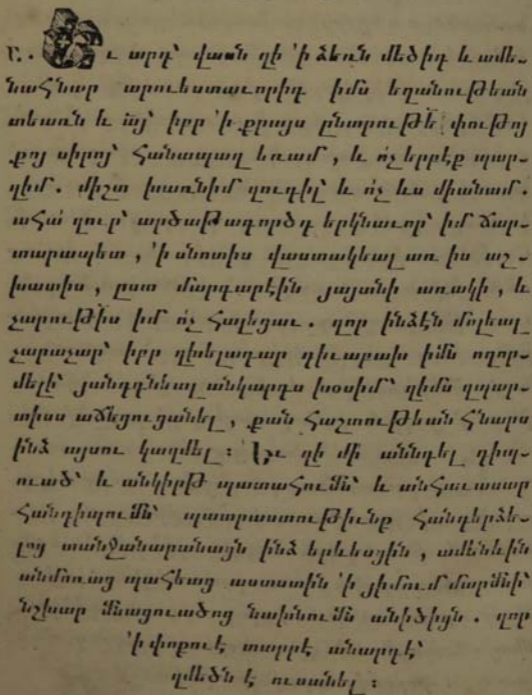 Բ. Եւ արդ՝ վասն զի ՚ի ձեռն մեծիդ և ամե-
նահնար արուեստաւորիդ իմս եղանութեան
տեառն և այ՝ իբր ՚ի քրայս ընտրութե փութոյ
քոյ սիրոյ՝ հանապազ եռամ, և ոչ երբէք պար-
զիմ. միշտ խառնիմ զուգիլ՝ և ոչ ևս միանամ.
ահա զուր՝ արծաթագործդ երկնաւոր՝ իմ ճար-
տարապետ, ՚ի սնոտիս վաստակեալ առ իս աշ-
խատիս, ըստ մարգարէին յայսնի առակի, և
չարութիս իմ ոչ հալեցաւ. զոր ինձէն մոլեալ
չարաչար՝ իբր զխելագար դիւաբախ իմն ողոր-
մելի՝ յանդգնեալ անկարգս խօսիմ՝ զիմն զպար-
տիսս աճեցուցանել, քան հաշտութեան հնարս
ինձ այսու կազմել: Եւ զի մի անգել դիպ-
ուած՝ և անկիրթ պատահումն՝ և անհաւասար
հանդիպումն՝ պատրաստութիւնք հանդերձե-
լոց տանջանարանացն ինձ երևեսցին, ամենևին
անմոռաց պահեաց աստստին ՚ի յիմում մարմնի՝
նշխար մնացուածոց նախնումն անիծիցն. զոր
՚ի փոքուէ տարրէ անարգէ՝
զմեծն է ուսանել: